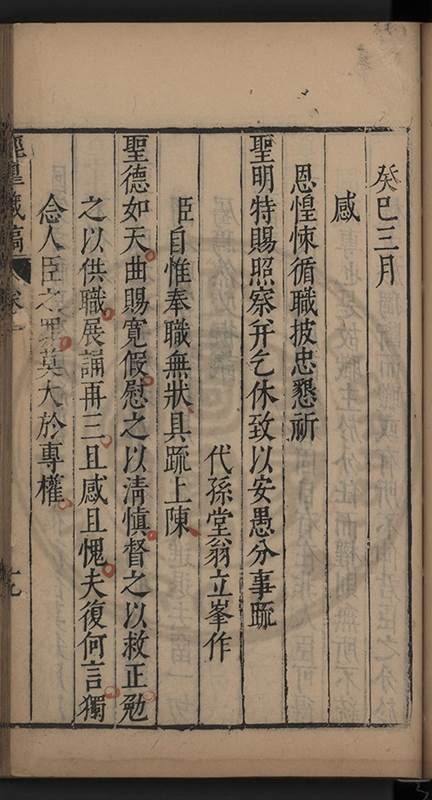 癸巳三月
感
恩惶悚循職披忠懇祈
聖明特賜照察并乞休致以安愚分事疏
代孫堂翁立峯作
臣自惟奉職無狀具疏上陳
聖德如天曲賜寛假慰之以清慎督之以救正勉
之以供職展誦再三且感且愧夫復何言獨
念人臣之罪莫大於專權